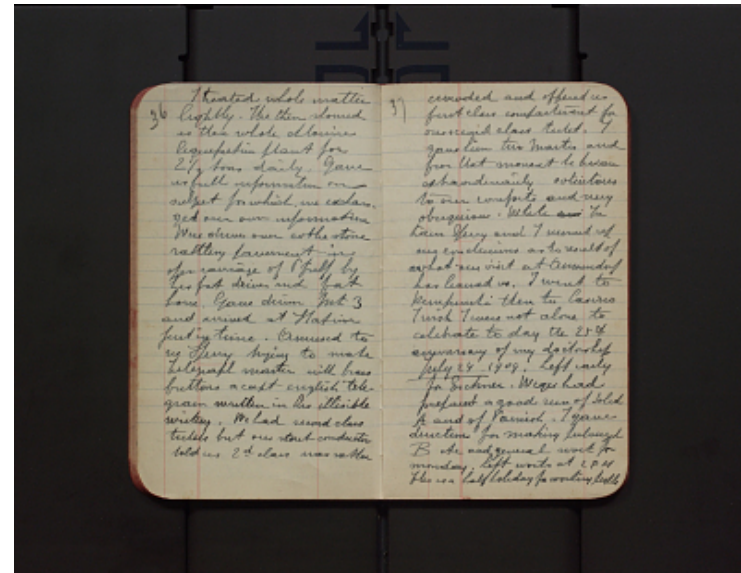 36
I treated whole matter
lightly. He then showed
us this whole chlorine
liquefaction plant for
2 1/2 tons daily. Gave
us full information on
subject for which, we exchan-
ged our own information
Were driven over cobblestone
rattling pavement in
open carriage of Pfuff by
his fat driver and fat
horse. Gave driver Mk 3
and arrived at Station
just in time. Amused to
see Sperry trying to make
telegraph master with brass
buttons accept english tele-
gram written in his illegible
writing. We had second class
tickets but our stout conductor
told us 2d class was rather
37
crowded and offered us
first class compartment for
our second class ticket. I
gave him two Marks and
from that moment he became
extraordinarily solicitous
to our comforts and very
obsequious. While in
train Sperry and I summed up
our conclusions as to result of
what our visit at
has learned us. I went to
Kempinski then to Casino
I wish I were not alone to
celebrate to day the 25th
anniversary of my doctorship
July 24 - 1909. Left early
for Erkner. Wiege had
prepared a good run of Solid
A and of Varnish. I gave
directions for making
B etc and general work for
monday. Left works at 2 P.M
this is a half holiday for working